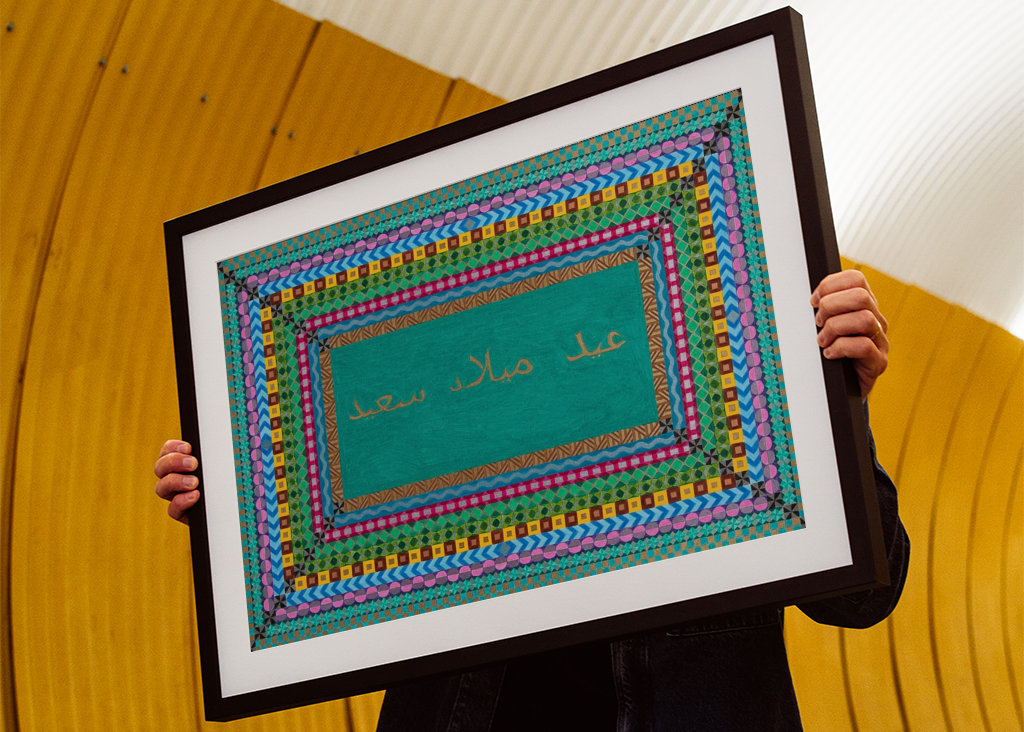 عيد ميلاد سعيد